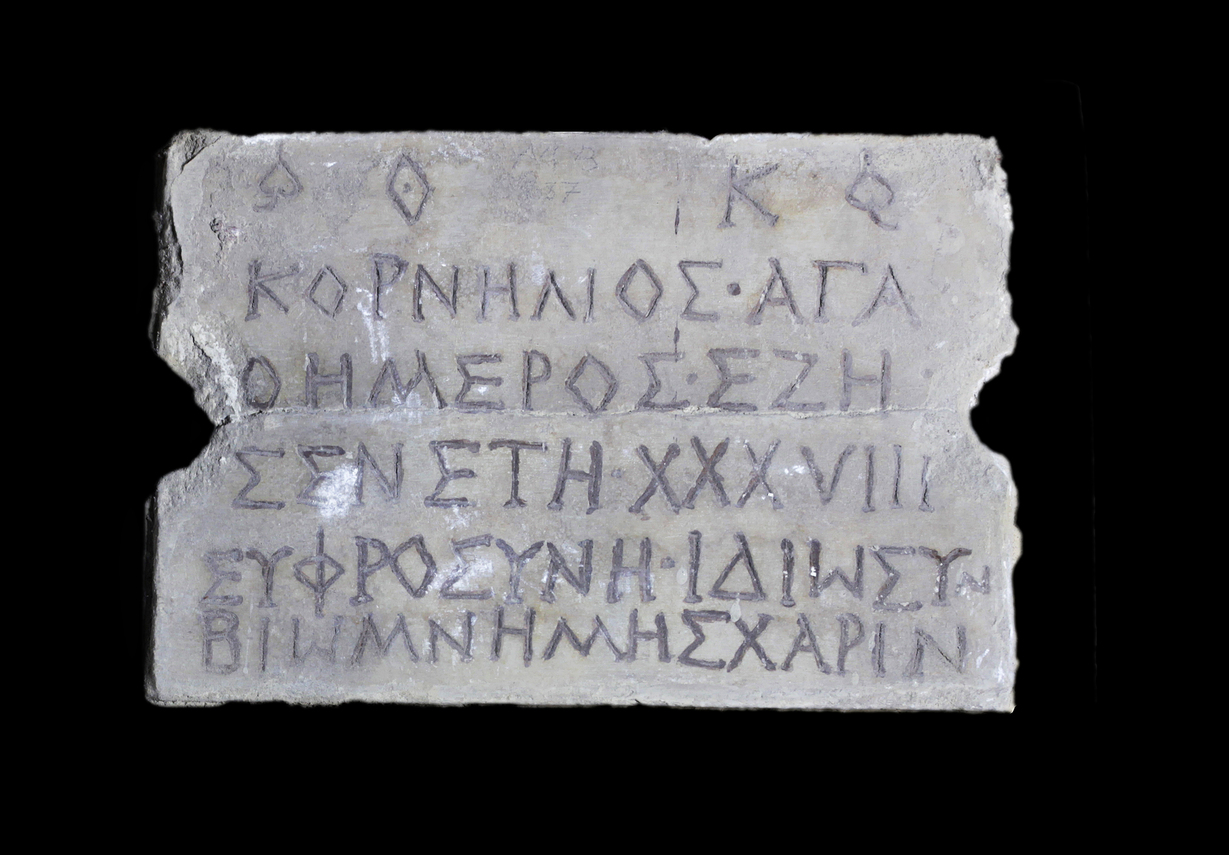 Θ Κ
ΚΟΡΝΗΛΙΟΣ·ΑΓΑ
ΘΗΜΕΡΟΣ·ΕΖΗ
ΣΕΝ ΕΤΗ·XXXVIII
ΕΥΦΡΟΣΥΝΗ·ΙΔΙΩΣΥΝ
ΒΙΩΜΝΗΜΗΣΧΑΡΙΝ